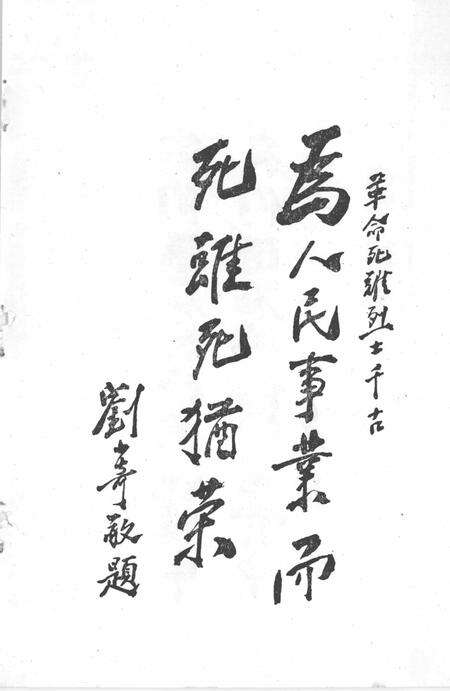 革命死難烈士千古
為人民事業而
死雖死猶荣
劉少奇敬題